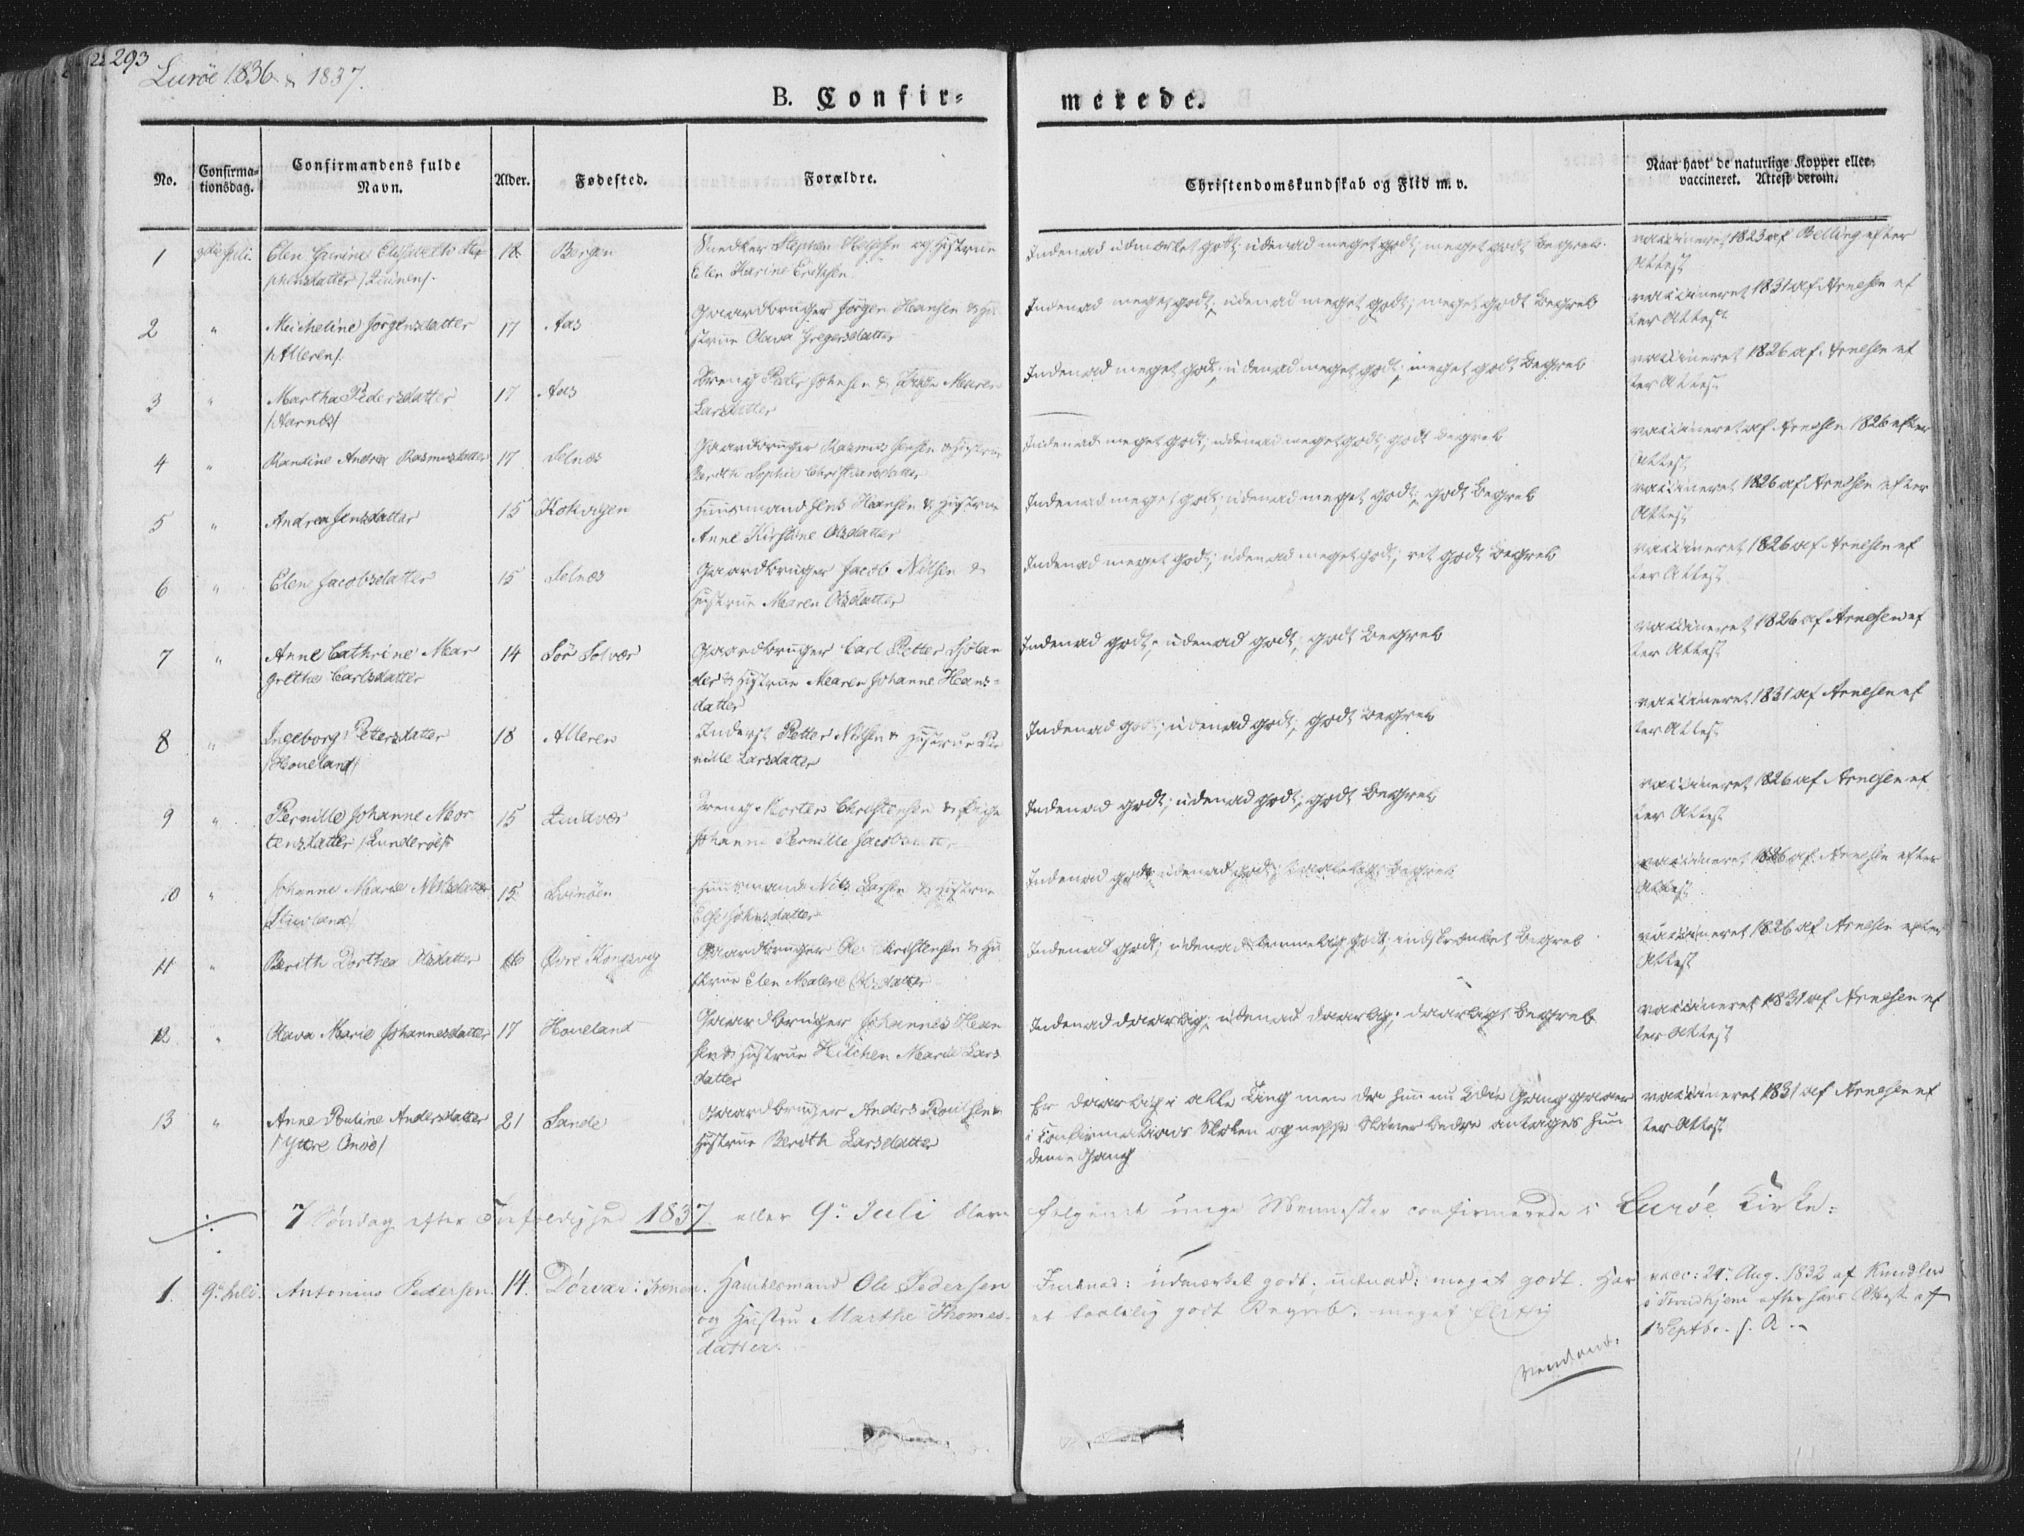 293
Lurøe 1836 & 1837.
B. Confir-
merede.
No.
Confirma-
tionsdag.
Confirmandens fulde
Navn.
Alder.
Fødested.
Forældre.
Christendomskundskab og Flid m. v.
Naar havt de naturlige Kopper eller
vaccineret. Attest derom.
1 Juli Elen Elisabeth Ste
phensdatter 18 Bergen Snedker Stephen og Hustrue
Elen Karine
Indenad udmærket godt; udenad meget godt; meget godt Begreb.
vaccineret 1823 af Belling efter
Attest
2 " Micheline Jørgensdatter
/Alleren/. 17 Aas Gaardbruger Jørgen Hansen & Hu
strue Olava Gregersdatter
Indenad meget godt; udenad meget godt; meget godt Begreb
vaccineret 1831 af Arnesen ef
ter Attest
3 " Martha Pedersdatter
/Aarnes/ 17 Aas Dreng Peder Johnsen & Pige Maren
Larsdatter
Indenad meget godt; udenad meget godt; meget godt Begreb
vaccineret 1826 af Arnesen ef
ter Attest
4 " Andrea Rasmusdatter 17 Selnæs Gaardbruger Rasmus Jensen & Hustrue
Sophie Christiansdatter
Indenad meget godt; udenad meget godt; godt Begreb
vaccineret af Arnesen 1826 efter
Attest
5 " Andrea Jensdatter 15 Kokvigen Huusmand Jens Hansen & Hustrue
Anne Kirstine Olsdatter
Indenad meget godt; udenad meget godt; godt Begreb
vaccineret 1826 af Arnesen efter
Attest
6 " Elen Jacobsdatter 15 Selnæs Gaardbruger Jacob Nilsen &
Hustrue Maren Olsdatter
Indenad meget godt; udenad meget godt; ret godt Begreb
vaccineret 1826 af Arnesen ef
ter Attest
7 " Anne Cathrine Mar
grethe Carlsdatter 14 Sør Solvær Gaardbruger Carl Petter
der & Hustrue Maren Johanne Hans-
datter
Indenad godt; udenad godt; godt Begreb
vaccineret 1826 af Arnesen ef
ter Attest
8 " Ingeborg Petersdatter
/Hoveland/ 18 Alleren Inderst Petter Nilsen & Hustrue Per
nille Larsdatter
Indenad godt; udenad godt; godt Begreb
vaccineret 1831 af Arnesen ef
ter Attest
9 " Pernille Johanne Mor
tensdatter /Lunderøe/ 15 Dreng Morten Christensen & Pige
Johanna Pernille Jacobsdatter
Indenad godt; udenad godt; godt Begreb
vaccineret 1826 af Arnesen ef
ter Attest
10 " Johanne Marie Nilsdatter 15 Svinøen Huusmand Nils Larsen & Hustrue
Else Johnsdatter
Indenad godt; udenad godt; taaleligt Begreb
vaccineret 1826 af Arnesen efter
Attest
11 " Berith Dorthea Olsdatter 16 Øvre Kongsvig Gaardbruger Ole Christensen & Hu
strue Elen Malene Olsdatter
Indenad godt; udenad temmelig godt; indskrænket Begreb
vaccineret 1826 af Arnesen efter
Attest
12 " Olava Marie Johannesdatter 17 Hoveland Gaardbruger Johannes Han
sen & Hustrue Marie Lars
datter
Indenad daarlig; udenad daarlig; daarligt Begreb
vaccineret 1831 af Arnesen ef
ter Attest
13 " Anne Pauline Andersdatter
/Yttre Onøe/ 21 Sande Gaardbruger Anders Poulsen &
Hustrue Berith Larsdatter
Er daarlig i alle Ting men da hun nu Gang gaaer
i Confirmations Skolen og neppe bliver bedre antages hun
denne Gang
vaccineret 1831 af Arnesen ef
ter Attest
7 Søndag efter Trefoldighed 1837 eller 9de Juli bleve følgende unge Mennesker confirmerede i Lurøe Kirke:
1. 9de Juli. Antonius Pedersen. 14. Dørvær i Trænen. Handelsmand Ole Pedersen
og Hustru Marthe Thomes-
datter.
Indenad: udmærket godt; udenad: meget godt. Har
et taalelig godt Begreb. meget flittig
vacc: 24. Aug. 1832 af Kundler
i Trondhjem efter hans Attest af
1 Septbr. s. A.